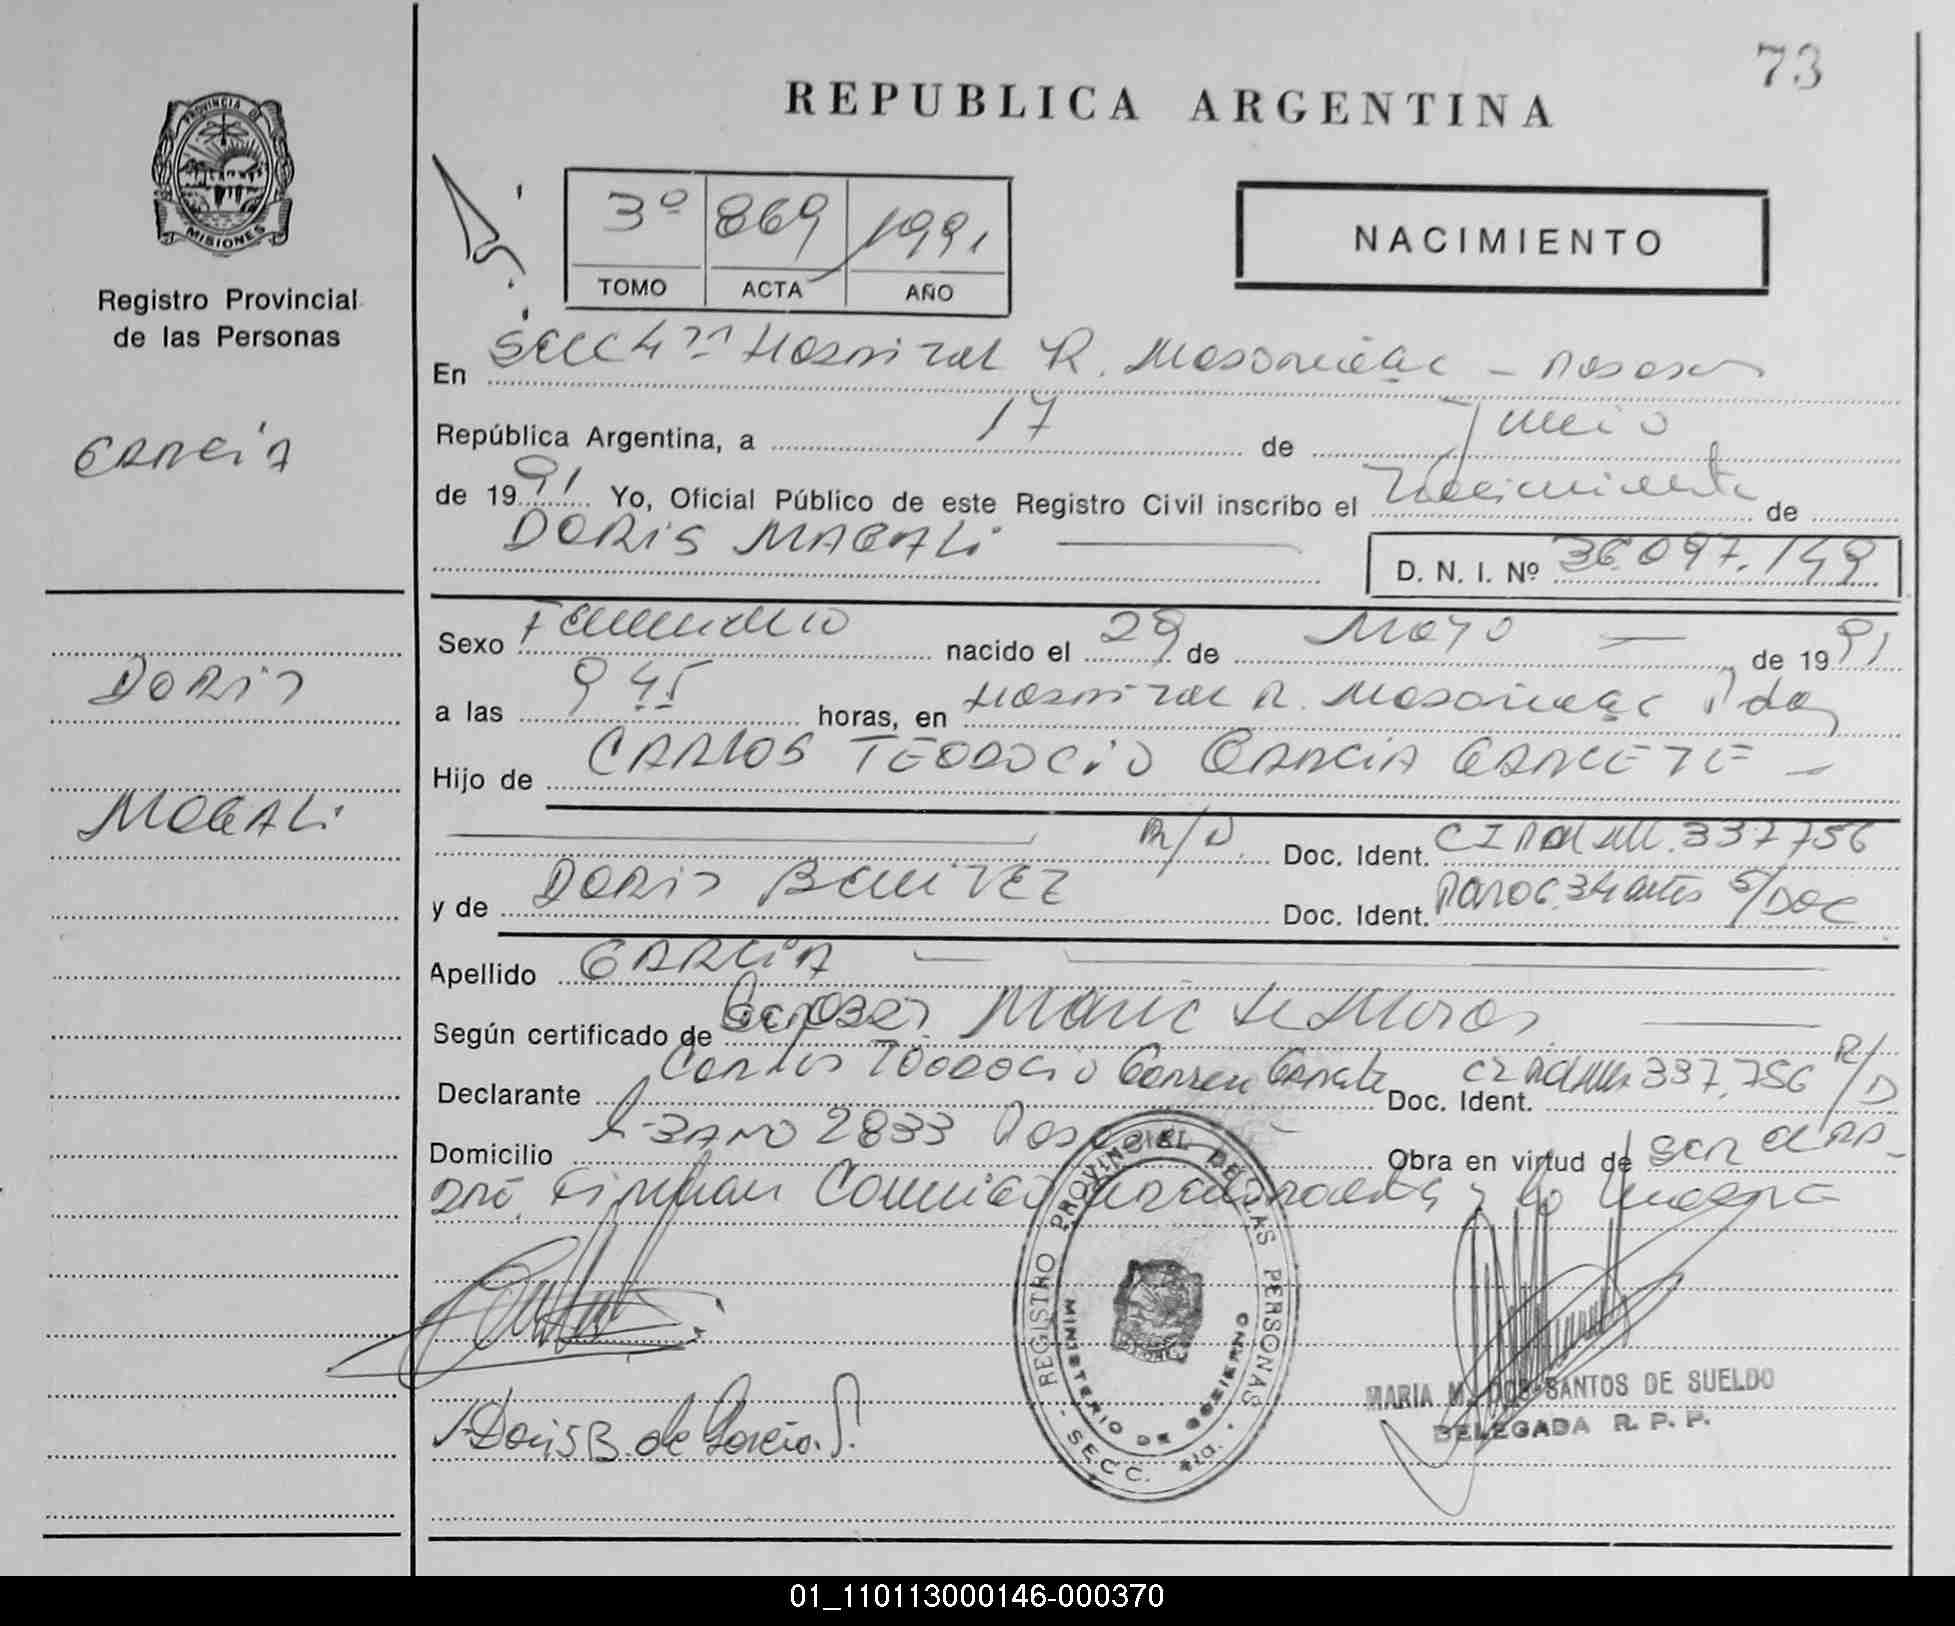 73
REPUBLICA ARGENTINA
PROVINCIA DE
MISIONES
Registro Provincial
de las Personas
3º 869 1991
TOMO ACTA AÑO
NACIMIENTO
En Secc 4ta Hospital R. Madariaga - Posadas
República Argentina, a 17 de Junio
de 1991 Yo, Oficial Público de este Registro Civil inscribo el Nacimiento de
DORIS MAGALI
D. N. I. Nº 36.097.149
GARCIA
DORIS
MAGALI
Sexo Femenino nacido el 29 de Mayo de 1991
a las 9 45 horas, en Hospital R. Madariaga Pdas
Hijo de CARLOS TEODOCIO GARCIA GARCETE
R/D. Doc. Ident. CI Pol Mnes. 337756
y de DORIS BENITEZ Doc. Ident. Parag. 34 años S/DOC
Apellido GARCIA
Según certificado de Maric de Moras
Declarante Carlos Teodocio Garcia Garcete Doc. Ident. CI Pol Mnes 337.756 R/D
Domicilio 2833 Posadas Obra en virtud de ser el pa-
dre. Firman la madre
Doris B. de Garcia.
REGISTRO PROVINCIAL DE LAS PERSONAS
MINISTERIO DE GOBIERNO
- SECC. 4ta. -
MARIA M. DOS SANTOS DE SUELDO
DELEGADA R. P. P.
01_110113000146-000370